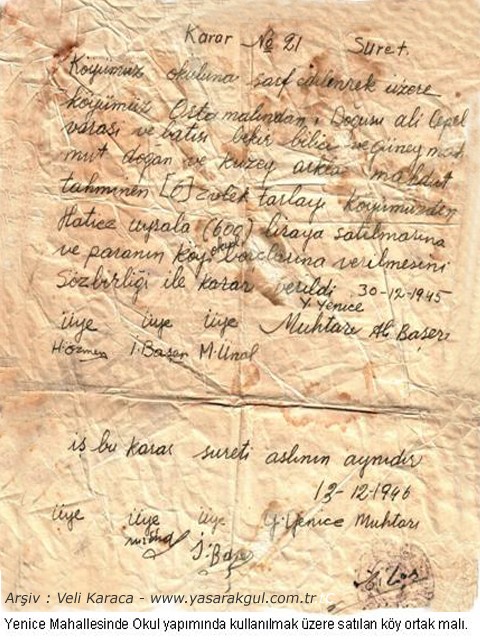 Karar № 21 Suret.
Köyümüz okuluna sarf edilmek üzere
köyümüz Orta malından, Doğusu ali
varası ve batısı bekir bilici ve Güney mah
mut doğan ve kuzey arkea mahdut
tahminen [6] Evlek tarlayı köyümüzden
Hatice uysala (600) liraya satılmasına
ve paranın köy okulu borçlarına verilmesini
Sözbirliği ile karar verildi 30-12-1945
Y. Yenice
üye üye üye Muhtarı Ali Başer
H. özmen İ. Başer M. Ünal
iş bu karar sureti aslının aynıdır
12-1946
üye üye üye Y. Yenice Muhtarı
Arşiv : Veli Karaca - www.yasarakgul.com.tr
Yenice Mahallesinde Okul yapımında kullanılmak üzere satılan köy ortak malı.